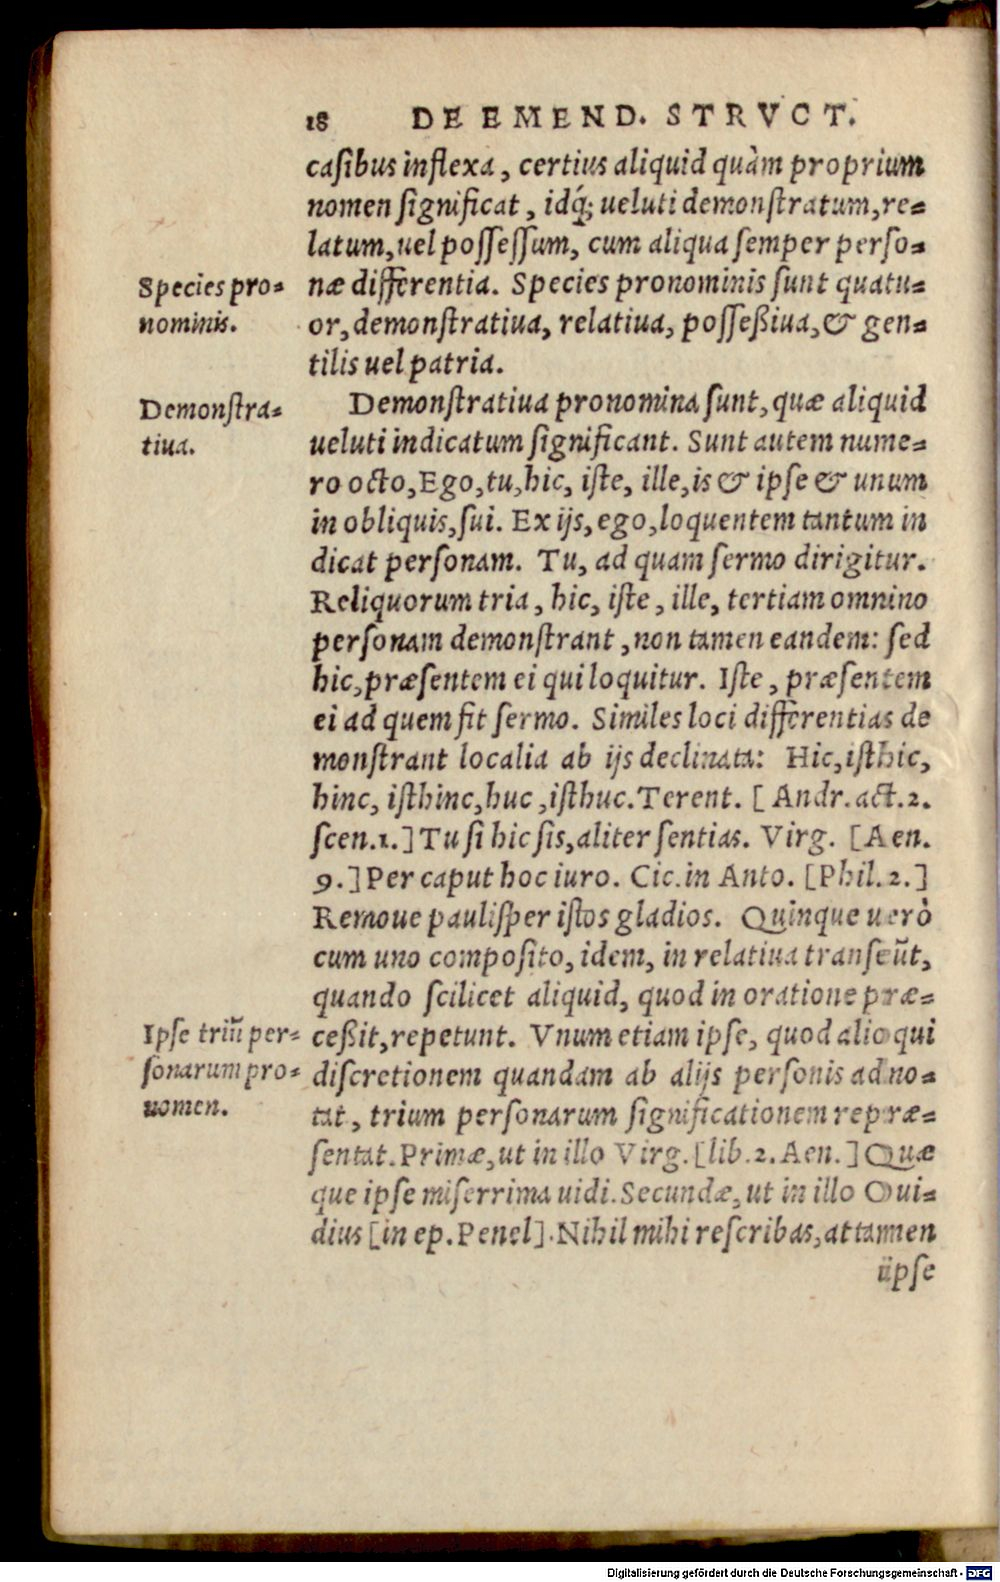 18 DE EMEND. STRVCT.
caſibus inflexa, certius aliquid quàm proprium
nomen ſignificat, idq́; ueluti demonſtratum, re=
latum, uel poſſeſſum, cum aliqua ſemper perſo=
Species pro=
nominis.
næ differentia. Species pronominis ſunt quatu=
or, demonſtratiua, relatiua, poſſeßiua, & gen=
tilis uel patria.
Demonſtra=
tiua.
Demonſtratiua pronomina ſunt, quæ aliquid
ueluti indicatum ſignificant. Sunt autem nume=
ro octo, Ego, tu, hic, iſte, ille, is & ipſe & unum
in obliquis, ſui. Ex ijs, ego, loquentem tantum in
dicat perſonam. Tu, ad quam ſermo dirigitur.
Reliquorum tria, hic, iſte, ille, tertiam omnino
perſonam demonſtrant, non tamen eandem: ſed
hic, præſentem ei qui loquitur. Iſte, præſentem
ei ad quem fit ſermo. Similes loci differentias de
monſtrant localia ab ijs declinata: Hic, iſthic,
hinc, iſthinc, huc, iſthuc. Terent. [Andr. act. 2.
ſcen. 1.] Tu ſi hic ſis, aliter ſentias. Virg. [Aen.
9.] Per caput hoc iuro. Cic. in Anto. [Phil. 2.]
Remoue pauliſper iſtos gladios. Quinque uerò
cum uno compoſito, idem, in relatiua tranſeũt,
quando ſcilicet aliquid, quod in oratione præ=
Ipſe triũ per=
ſonarum pro=
nomen.
ceßit, repetunt. Vnum etiam ipſe, quod alioqui
diſcretionem quandam ab alijs perſonis adno=
tat, trium perſonarum ſignificationem repræ=
ſentat. Primæ, ut in illo Virg. [lib. 2. Aen.] Quæ
que ipſe miſerrima uidi. Secundæ, ut in illo Oui=
dius [in ep. Penel]. Nihil mihi reſcribas, attamen
iipſe
Digitalisierung gefördert durch die Deutsche Forschungsgemeinschaft - DFG